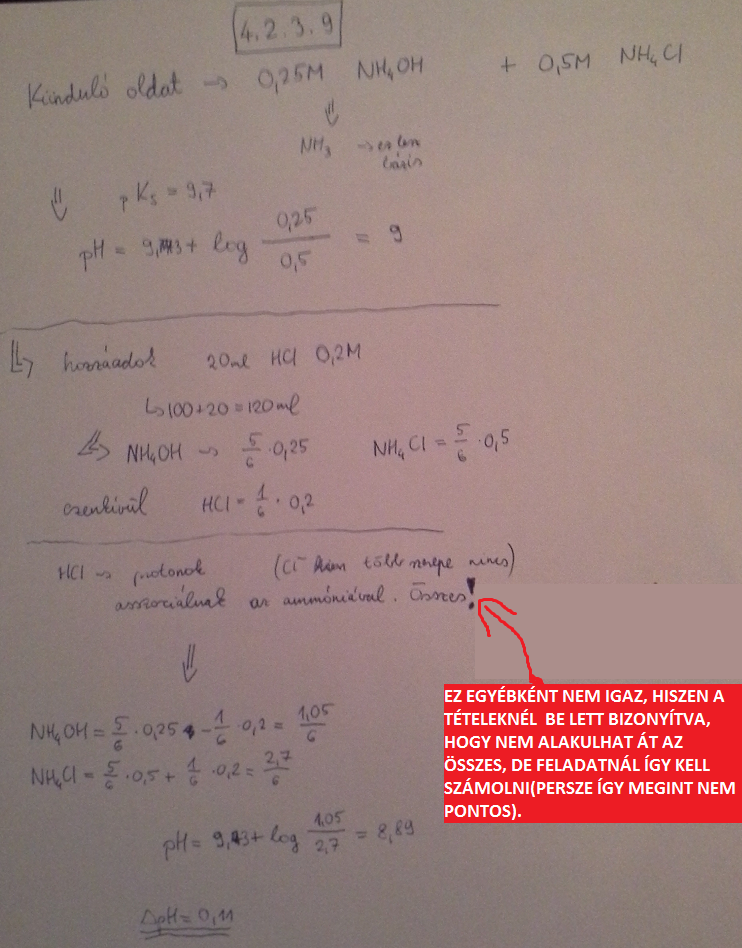 4.2.3.9
Kiinduló oldat → 0,25M NH₄OH + 0,5M NH₄Cl
⇓
NH₃ → ez lesz
bázis
⇓ pKs = 9,7
pH = 9,43 + log 0,25/0,5 = 9
hozzáadok 20ml HCl 0,2M
↳ 100+20=120ml
NH₄OH → 5/6 · 0,25 NH₄Cl = 5/6 · 0,5
ezenkívül HCl = 1/6 · 0,2
HCl → protonok (Cl⁻ több szerepe nincs)
asszociálnak az ammóniával. Összes!
⇓
EZ EGYÉBKÉNT NEM IGAZ, HISZEN A
TÉTELEKNÉL BE LETT BIZONYÍTVA,
HOGY NEM ALAKULHAT ÁT AZ
ÖSSZES, DE FELADATNÁL ÍGY KELL
SZÁMOLNI(PERSZE ÍGY MEGINT NEM
PONTOS).
NH₄OH = 5/6 · 0,25 - 1/6 · 0,2 = 1,05/6
NH₄Cl = 5/6 · 0,5 + 1/6 · 0,2 = 2,7/6
pH = 9,43 + log 1,05/2,7 = 8,89
ΔpH = 0,11